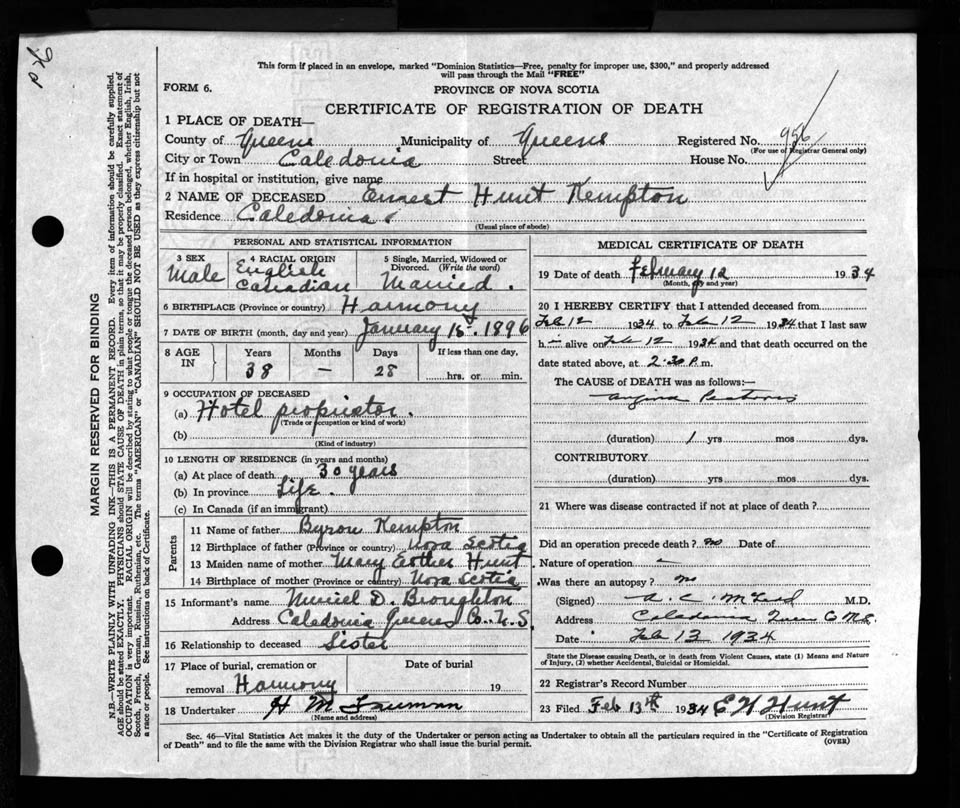 This form if placed in an envelope, marked "Dominion Statistics—Free, penalty for improper use, $300," and properly addressed
will pass through the Mail "FREE"
FORM 6.
PROVINCE OF NOVA SCOTIA
CERTIFICATE OF REGISTRATION OF DEATH
1 PLACE OF DEATH—
County of Queens Municipality of Queens Registered No. 956
(For use of Registrar General only)
City or Town Caledonia Street House No.
If in hospital or institution, give name
2 NAME OF DECEASED Ernest Hunt Kempton
Residence Caledonia
(Usual place of abode)
PERSONAL AND STATISTICAL INFORMATION
3 SEX Male
4 RACIAL ORIGIN English Canadian
5 Single, Married, Widowed or Divorced. (Write the word) Married.
6 BIRTHPLACE (Province or country) Harmony
7 DATE OF BIRTH (month, day and year) January 15. 1896
8 AGE IN Years 38 Months — Days 28 If less than one day, hrs. or min.
9 OCCUPATION OF DECEASED
(a) Hotel proprietor.
(Trade or occupation or kind of work)
(b)
(Kind of industry)
10 LENGTH OF RESIDENCE (in years and months)
(a) At place of death 30 years
(b) In province Life.
(c) In Canada (if an immigrant)
Parents
11 Name of father Byron Kempton
12 Birthplace of father (Province or country) Nova Scotia
13 Maiden name of mother Mary Hunt
14 Birthplace of mother (Province or country) Nova Scotia
15 Informant's name Muriel D. Broughton
Address Caledonia Queens Co. N.S.
16 Relationship to deceased Sister
17 Place of burial, cremation or Date of burial
removal Harmony 19
18 Undertaker H M
(Name and address)
MEDICAL CERTIFICATE OF DEATH
19 Date of death February 12 1934
(Month, day and year)
20 I HEREBY CERTIFY that I attended deceased from
Feb 12 1934 to Feb 12 1934 that I last saw
h alive on Feb 12 1934 and that death occurred on the
date stated above, at 2.30 P.m.
The CAUSE OF DEATH was as follows:—
Angina Pectoris
(duration) 1 yrs mos dys.
CONTRIBUTORY
(duration) yrs. mos. dys.
21 Where was disease contracted if not at place of death?
Did an operation precede death? no Date of
Nature of operation —
Was there an autopsy? no
(Signed) A. C. M.D.
Address Caledonia
Date Feb 13 1934
State the Disease causing Death, or in death from Violent Causes, state (1) Means and Nature
of Injury, (2) whether Accidental, Suicidal or Homicidal.
22 Registrar's Record Number
23 Filed Feb 13th 1934 E H Hunt
(Division Registrar)
Sec. 46—Vital Statistics Act makes it the duty of the Undertaker or person acting as Undertaker to obtain all the particulars required in the "Certificate of Registration
of Death" and to file the same with the Division Registrar who shall issue the burial permit.
(OVER)
MARGIN RESERVED FOR BINDING
N.B.—WRITE PLAINLY WITH UNFADING INK—THIS IS A PERMANENT RECORD. Every item of information should be carefully supplied.
AGE should be stated EXACTLY. PHYSICIANS should STATE CAUSE OF DEATH in plain terms, so that it may be properly classified. Exact statement of
OCCUPATION is very important. RACIAL ORIGIN will be described by stating to what people or tongue the deceased person belonged, whether English, Irish,
Scotch, French, German, Russian, Ruthenian, etc. The terms "AMERICAN" or "CANADIAN" SHOULD NOT BE USED as they express citizenship but not
a race or people. See instructions on back of Certificate.